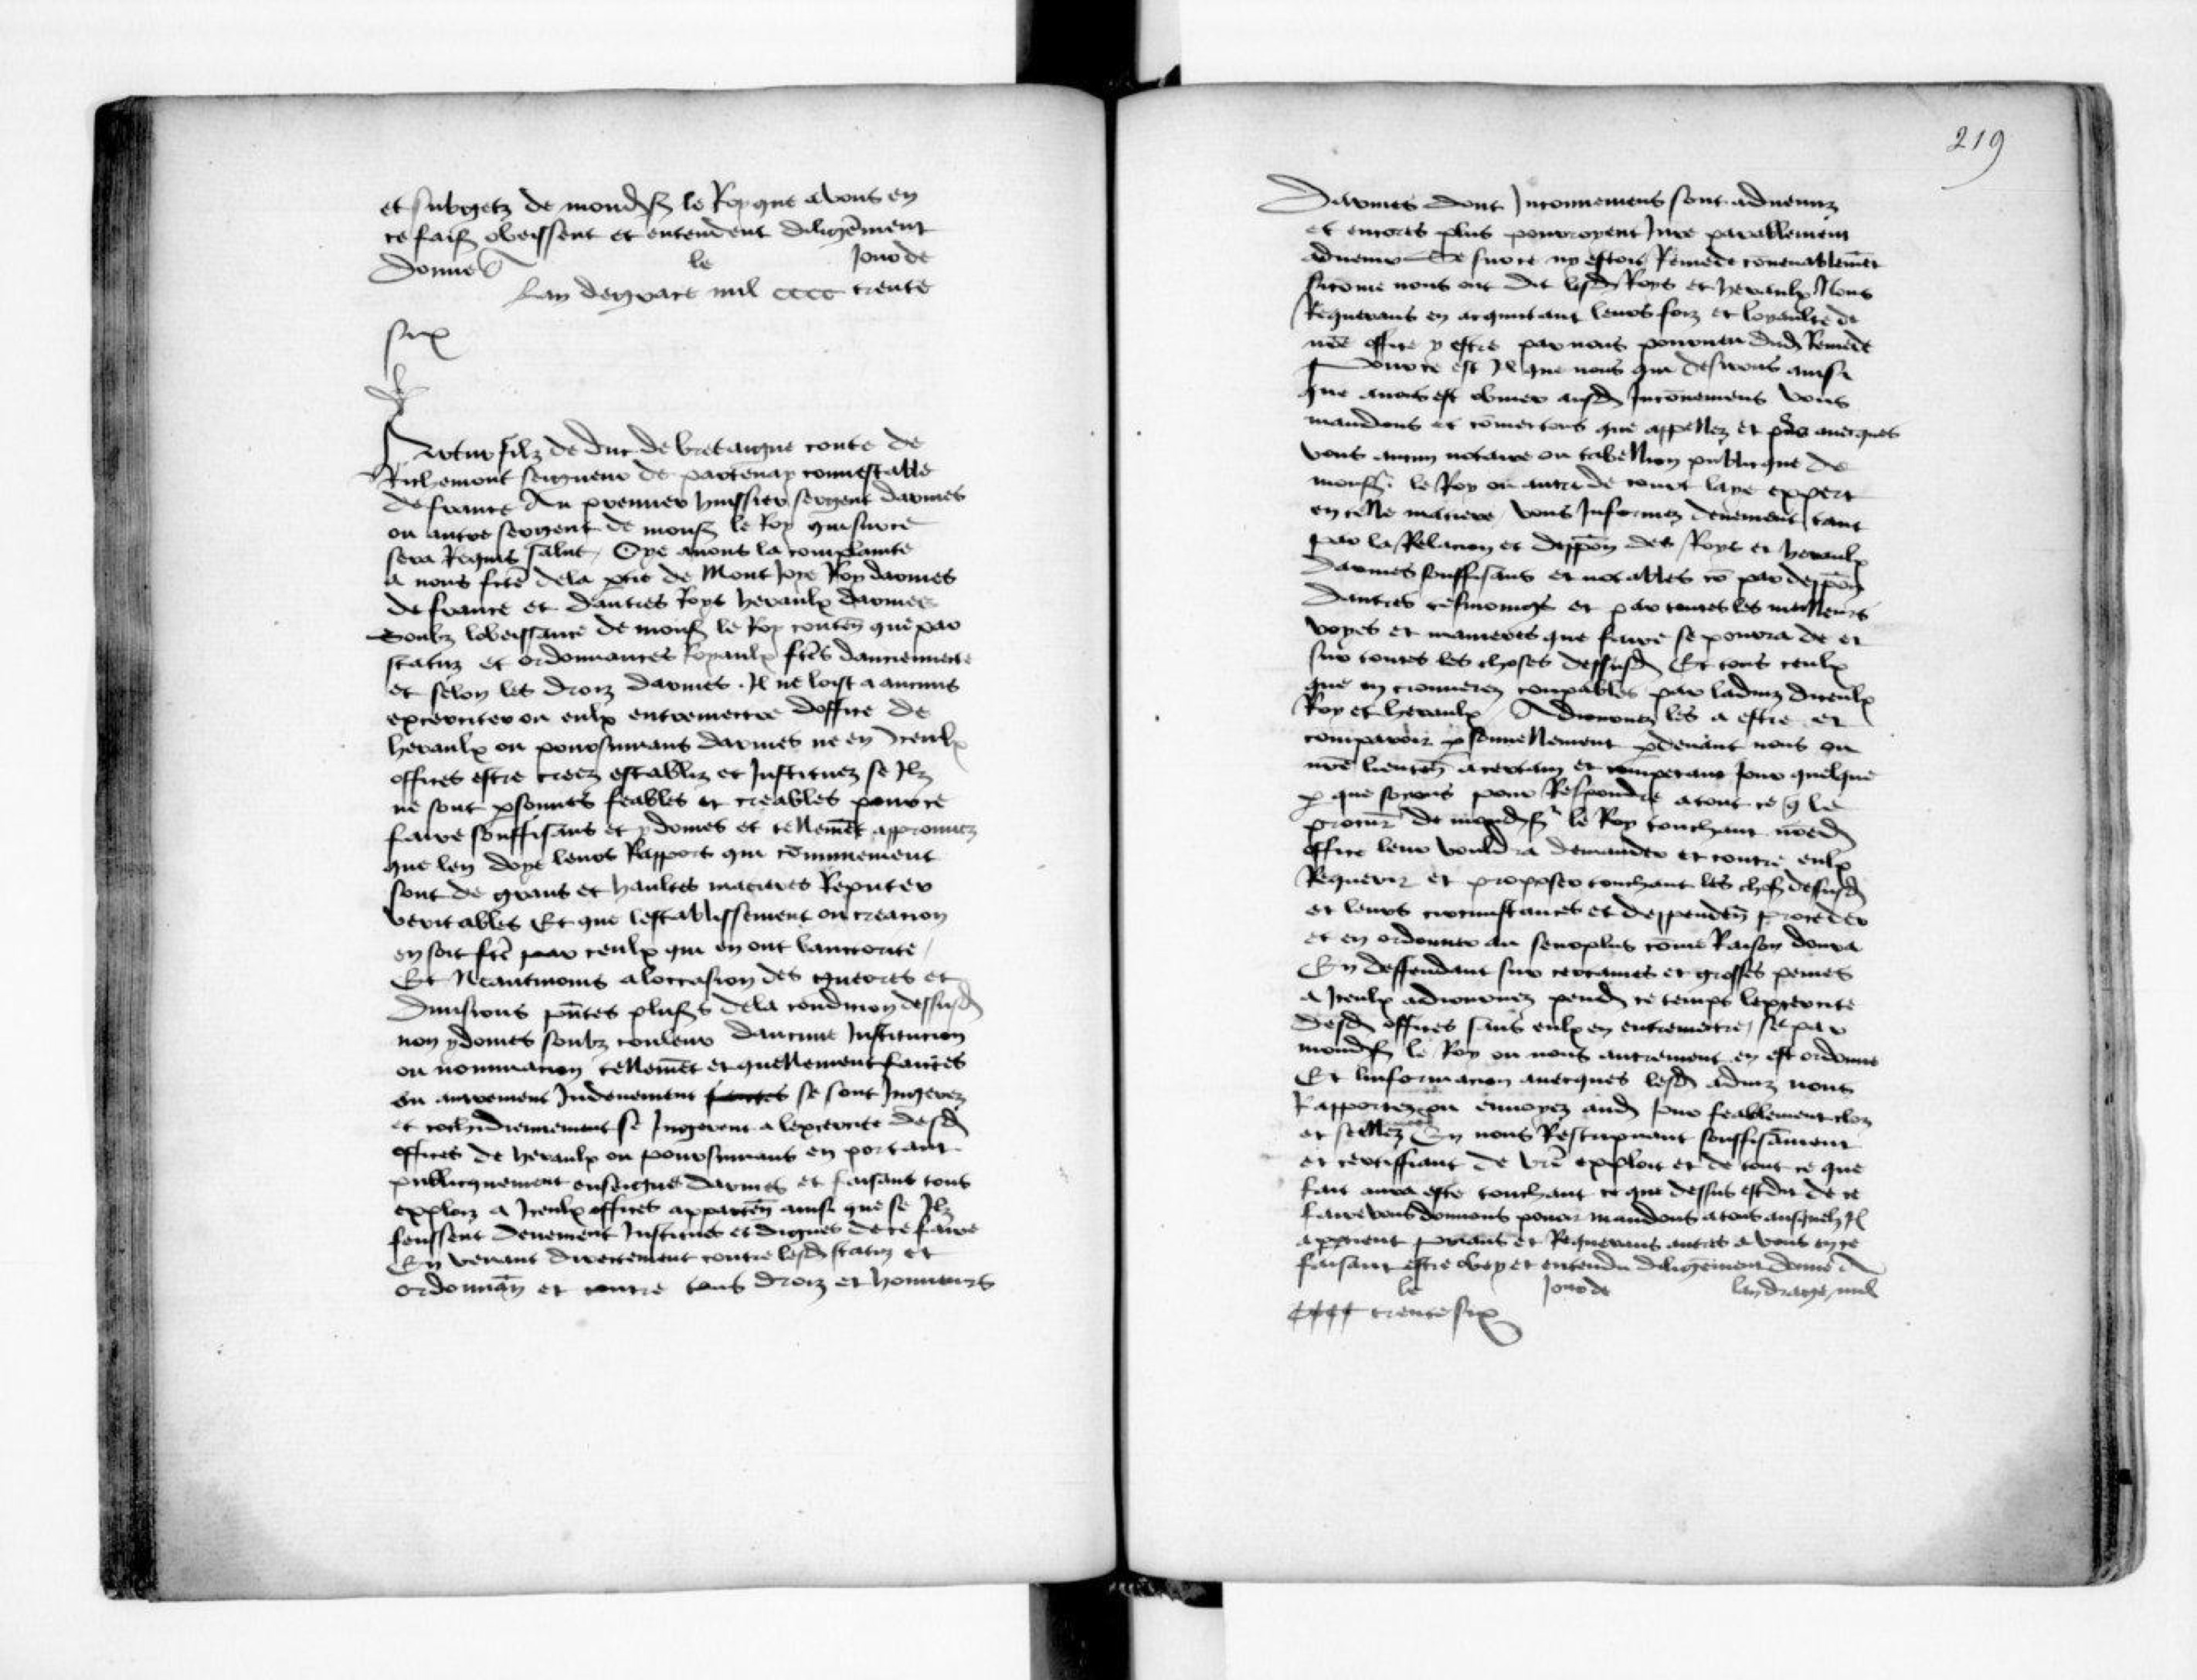 et subgetz de mondsr le Roy que a vous en
ce faisr obeissent et entendent diligēment
Donne le Jour de
Lan de grace mil cccc trente
six
Artur filz de duc de bretaigne conte de
Richemont seigneur de partenay connestable
de france Au premier huissier sergent darmes
ou autre sergent de monsr le Roy qui sur ce
sera Requis salut, Oye auons la complainte
a nous fcē de la ptie de Mont Joye Roy darmes
de france et dautres Roys heraulx darmes
Soubz lobeissance de monsr le Roy contēn que par
statuz et ordonnances Royaulx fcēs danciennete
et selon les droiz darmes. Il ne loist a aucuns
exerciter ou eulx entremectre doffice de
heraulx ou poursuiuans darmes ne en Iceulx
offices estre creez establiz et Instituez se Ilz
ne sont psonnes feables et creables pour ce
faire souffisans et ydoines et tellemēt approuuez
que len doye leurs Rapport qui cōmunement
sont de grans et haultes matieres Reputer
veritables Et que lestablissement ou creacion
en soit fcē par ceulx qui en ont lauctorite,
Et Neantmoins a loccasion des guerres et
Diuisions pn̄tes plusrs de la condicion dessusd
non ydoines soubz couleur daucune Institucion
ou nominacion tellemēt et quellement faictes
ou autrement Indeuement faictes se sont Ingerez
et cothidiennement se Ingerent a lexercite desd
offices de heraulx ou poursuiuans en portant
publicquement enseigne darmes et faisans tous
exploiz a Iceulx offices appartēn ainsi que se Ilz
feussent deuement Institues et dignes de ce faire
En venant directement contre lesd statuz et
ordonnān et contre tous droiz et honneurs
219
Darmes dont Inconueniens sont aduenuz
et encores plus pourroyent Jure parellement
aduenir Se sur ce ny estoit Remede conuenablemēt
sicōme nous ont dit lesd Roys et heraulx Nous
Requerans en acquitant leurs foiz et loyaulte de
nrē office y estre par nous pourueu dud Remede
Pour ce est Il que nous qui desirons ainsi
que auons est obuier ausd Inconueniens Vous
mandons et cōmectons que appellez et prīs auecques
vous aucun notaire ou tabellion publicque de
monsr le Roy ou autre de court laye expert
en celle matiere vous Informez deuement tant
par la Relacion et deppōn des Roys et heraulx
darmes souffisans et notables cō par deppōn
dautres tesmoings et par toutes les meilleurs
voyes et manieres que faire se pourra de et
sur toutes les choses dessusd Et tous ceulx
que en trouuerez coupables par laduiz diceulx
Roy et heraulx Adiournez les a estre et
comparoir psonnellement pdeuant nous ou
nrē lieutēn a certain et competant Jour quelque
p que soyons pour Respondre a tout ce q le
procur de mondsr le Roy touchant nrēd
office leur vouldra demander et contre eulx
Requerir et proposer touchant les choses desusd
et leurs circunstances et deppendēn proceder
et en ordonner au seurplus cōme Raison donra
En deffendant sur certaines et grosses peines
a Iceulx adiournez pend ce temps lexercite
desd offices sans eulx en entremectre, se par
mondsr le Roy ou nous autrement en est ordonne
Et linformacion auecques lesd aduiz nous
Rapportez ou enuoyez aud Jour feablement cloz
et scellez En nous Rescripuant souffisāment
et certiffiant de vrē exploit et de tout ce que
fait aura este touchant ce que dessus est dit De ce
faire vous donnons pouoir mandons a tous ausquelz Il
apptient prians et Requerans autres a vous en ce
faisant estre obey et entendu diligēment donne
le Jour de lan de grace mil
cccc trente six